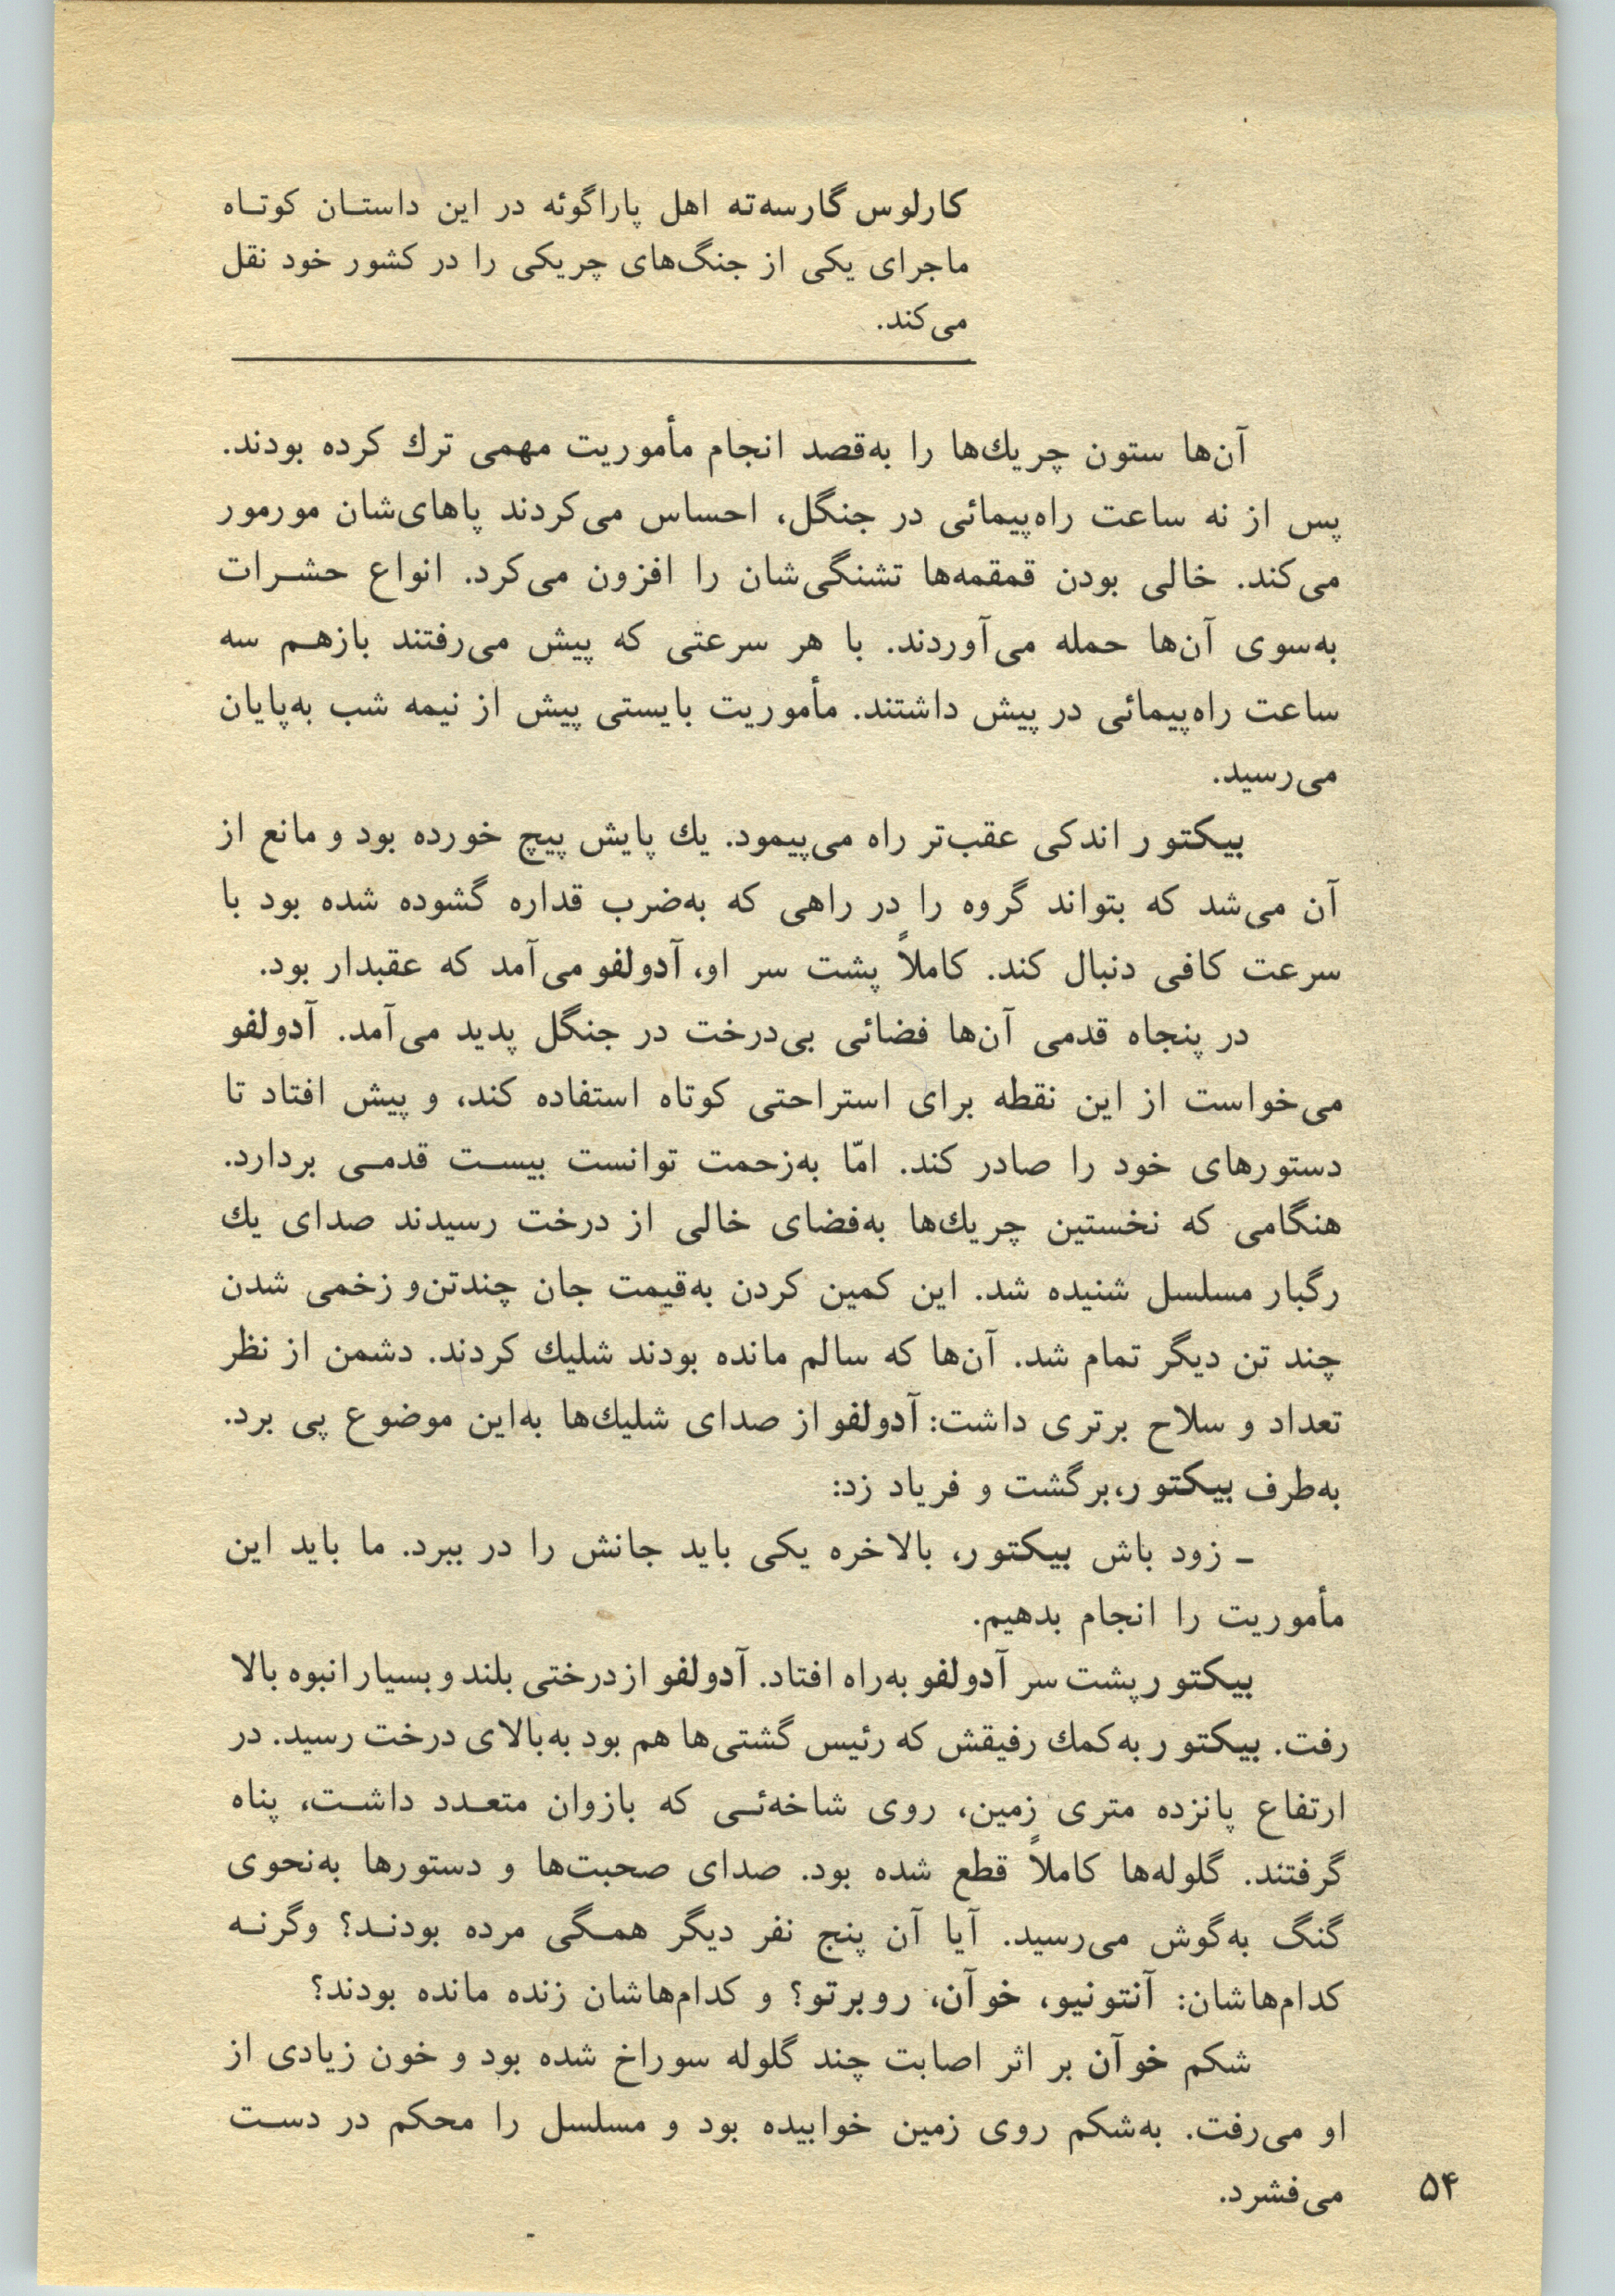 کارلوس گارسه‌ته اهل پاراگوئه در این داستان کوتاه
ماجرای یکی از جنگ‌های چریکی را در کشور خود نقل
می‌کند.
آن‌ها ستون چریك‌ها را به‌قصد انجام مأموریت مهمی ترك کرده بودند.
پس از نه ساعت راه‌پیمائی در جنگل، احساس می‌کردند پاهای‌شان مورمور
می‌کند. خالی بودن قمقمه‌ها تشنگی‌شان را افزون می‌کرد. انواع حشرات
به‌سوی آن‌ها حمله می‌آوردند. با هر سرعتی که پیش می‌رفتند بازهم سه
ساعت راه‌پیمائی در پیش داشتند. مأموریت بایستی پیش از نیمه شب به‌پایان
می‌رسید.
بیکتور اندکی عقب‌تر راه می‌پیمود. یك پایش پیچ خورده بود و مانع از
آن می‌شد که بتواند گروه را در راهی که به‌ضرب قداره گشوده شده بود با
سرعت کافی دنبال کند. کاملاً پشت سر او، آدولفو می‌آمد که عقبدار بود.
در پنجاه قدمی آن‌ها فضائی بی‌درخت در جنگل پدید می‌آمد. آدولفو
می‌خواست از این نقطه برای استراحتی کوتاه استفاده کند، و پیش افتاد تا
دستورهای خود را صادر کند. امّا به‌زحمت توانست بیست قدمی بردارد.
هنگامی که نخستین چریك‌ها به‌فضای خالی از درخت رسیدند صدای یك
رگبار مسلسل شنیده شد. این کمین کردن به‌قیمت جان چندتن‌و زخمی شدن
چند تن دیگر تمام شد. آن‌ها که سالم مانده بودند شلیك کردند. دشمن از نظر
تعداد و سلاح برتری داشت: آدولفو از صدای شلیك‌ها به‌این موضوع پی برد.
به‌طرف بیکتور،برگشت و فریاد زد:
ـ زود باش بیکتور، بالاخره یکی باید جانش را در ببرد. ما باید این
مأموریت را انجام بدهیم.
بیکتور پشت سر آدولفو به‌راه افتاد. آدولفو از درختی بلند و بسیار انبوه بالا
رفت. بیکتور به‌کمك رفیقش که رئیس گشتی‌ها هم بود به‌بالای درخت رسید. در
ارتفاع پانزده متری زمین، روی شاخه‌ئی که بازوان متعدد داشت، پناه
گرفتند. گلوله‌ها کاملاً قطع شده بود. صدای صحبت‌ها و دستورها به‌نحوی
گنگ به‌گوش می‌رسید. آیا آن پنج نفر دیگر همگی مرده بودند؟ وگرنه
کدام‌هاشان: آنتونیو، خوآن، روبرتو؟ و کدام‌هاشان زنده مانده بودند؟
شکم خوآن بر اثر اصابت چند گلوله سوراخ شده بود و خون زیادی از
او می‌رفت. به‌شکم روی زمین خوابیده بود و مسلسل را محکم در دست
می‌فشرد.
۵۴